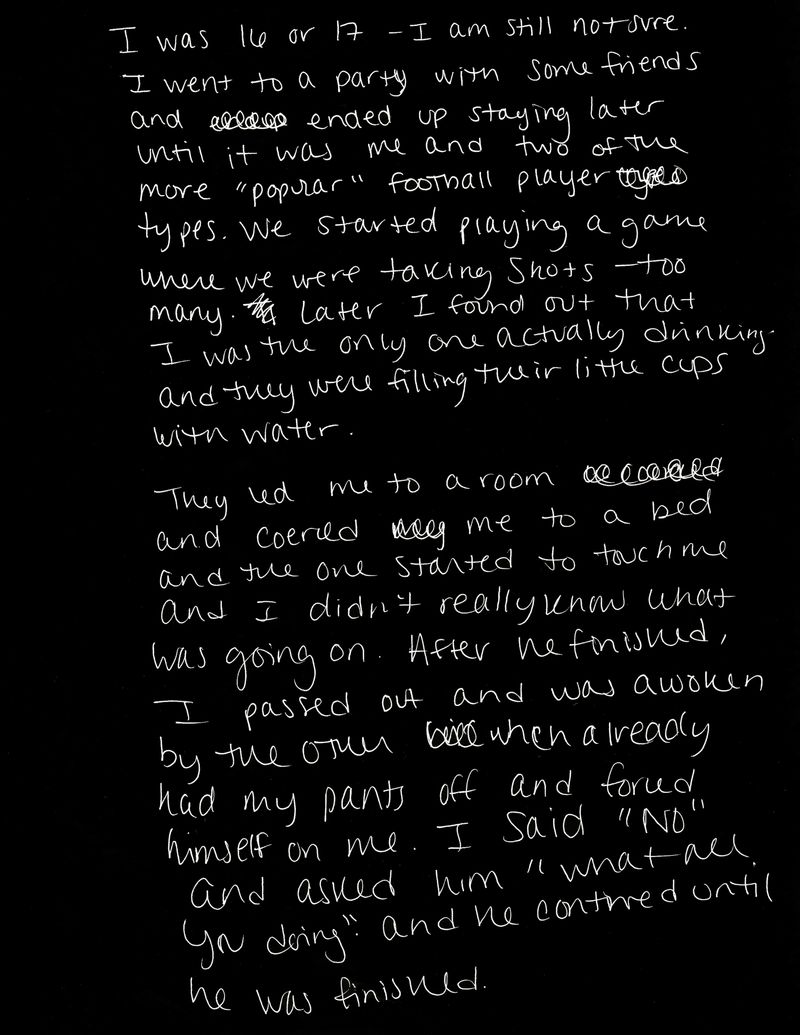 I was 16 or 17 - I am still not sure.
I went to a party with some friends
and ended up staying later
until it was me and two of the
more "popular" football player
types. We started playing a game
where we were taking shots - too
many. Later I found out that
I was the only one actually drinking
and they were filling their little cups
with water.
They led me to a room
and coerced me to a bed
and the one started to touch me
and I didn't really know what
was going on. After he finished,
I passed out and was awoken
by the other when already
had my pants off and forced
himself on me. I said "NO"
and asked him "what are
you doing". and he continued until
he was finished.